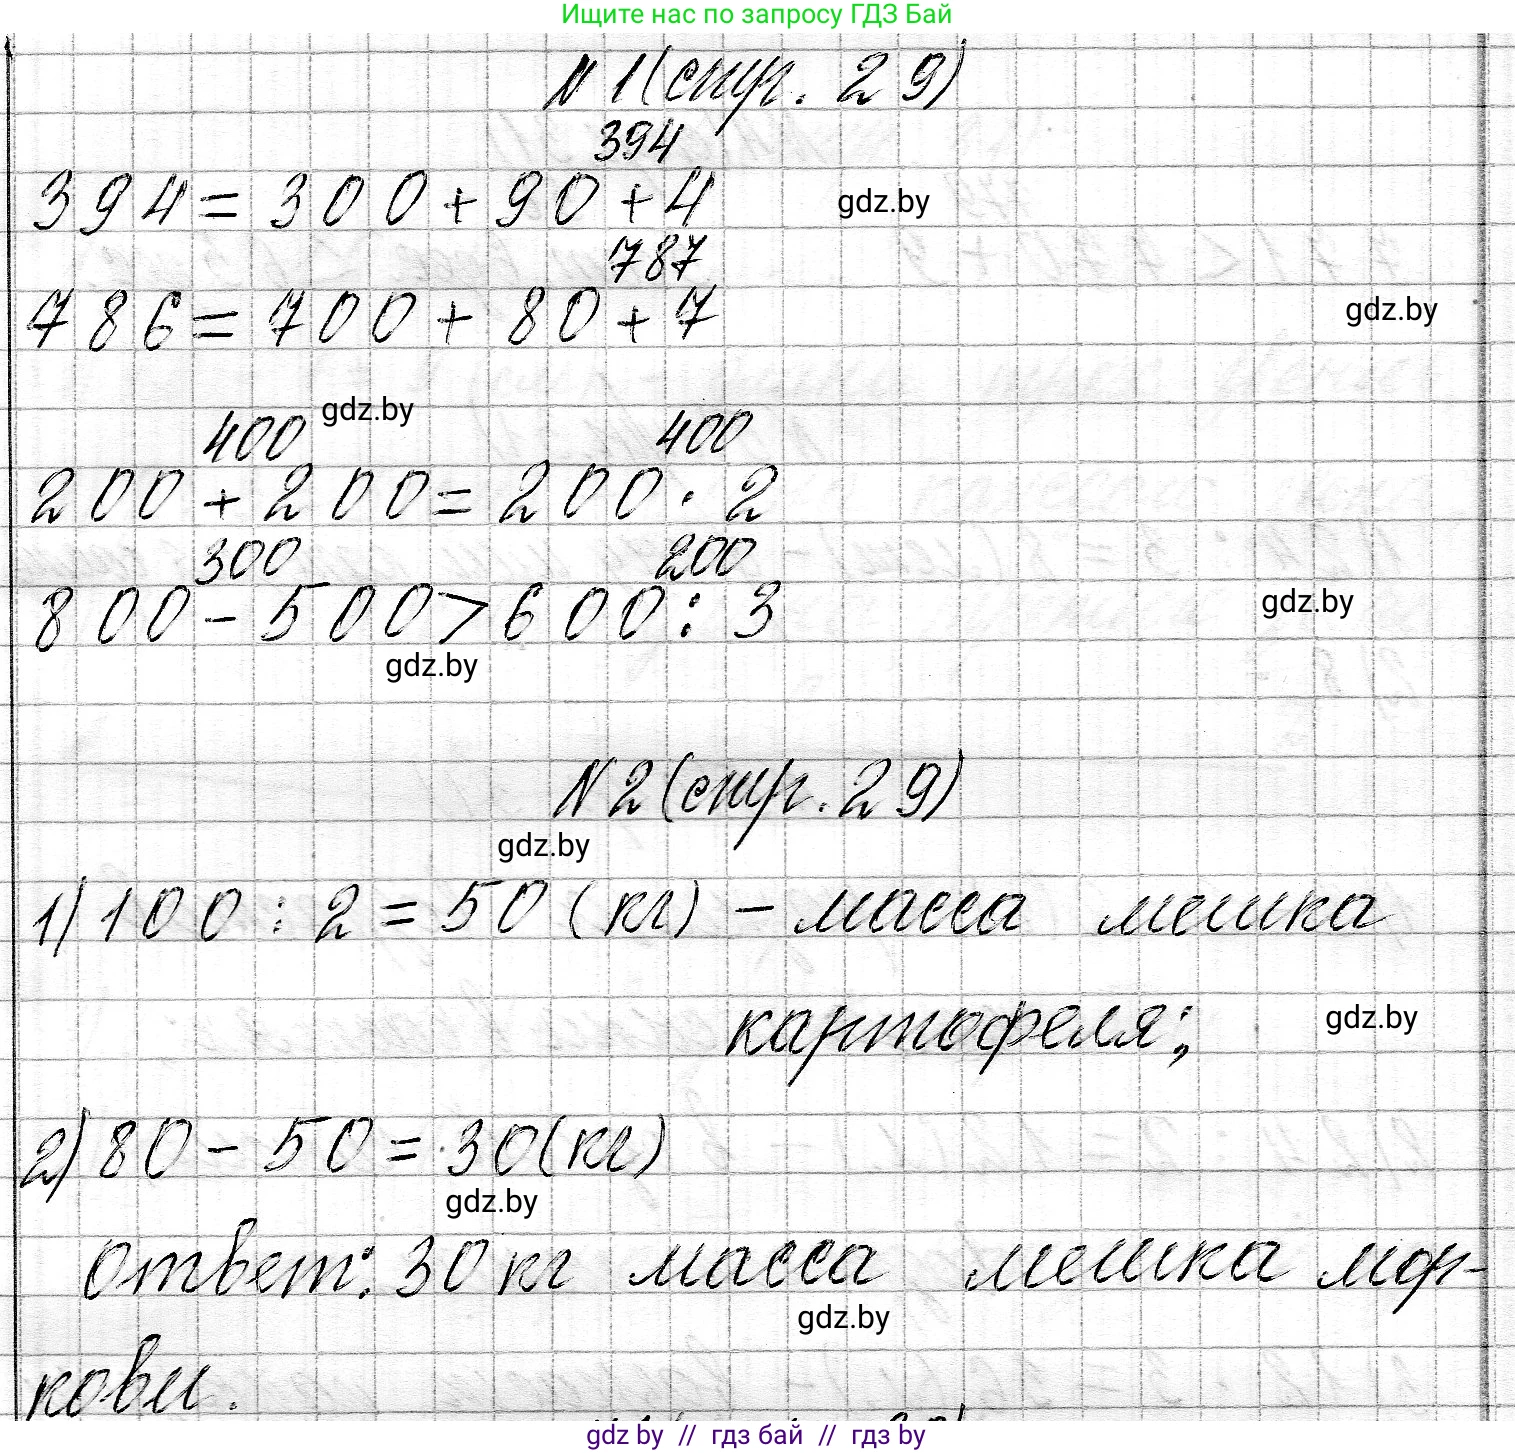 Ищите нас по запросу ГДЗ Бай
№ 1 (стр. 29)
394
394 = 300 + 90 + 4 gdz.by
787
786 = 700 + 80 + 7 gdz.by
400 gdz.by 400
200 + 200 = 200 · 2
300 200
800 - 500 > 600 : 3 gdz.by
gdz.by
№ 2 (стр. 29)
gdz.by
1) 100 : 2 = 50 (кг) - масса мешка
картофеля; gdz.by
2) 80 - 50 = 30 (кг)
gdz.by
Ответ: 30 кг масса мешка мор-
gdz.by
кови.
gdz by // гдз бай // гдз by